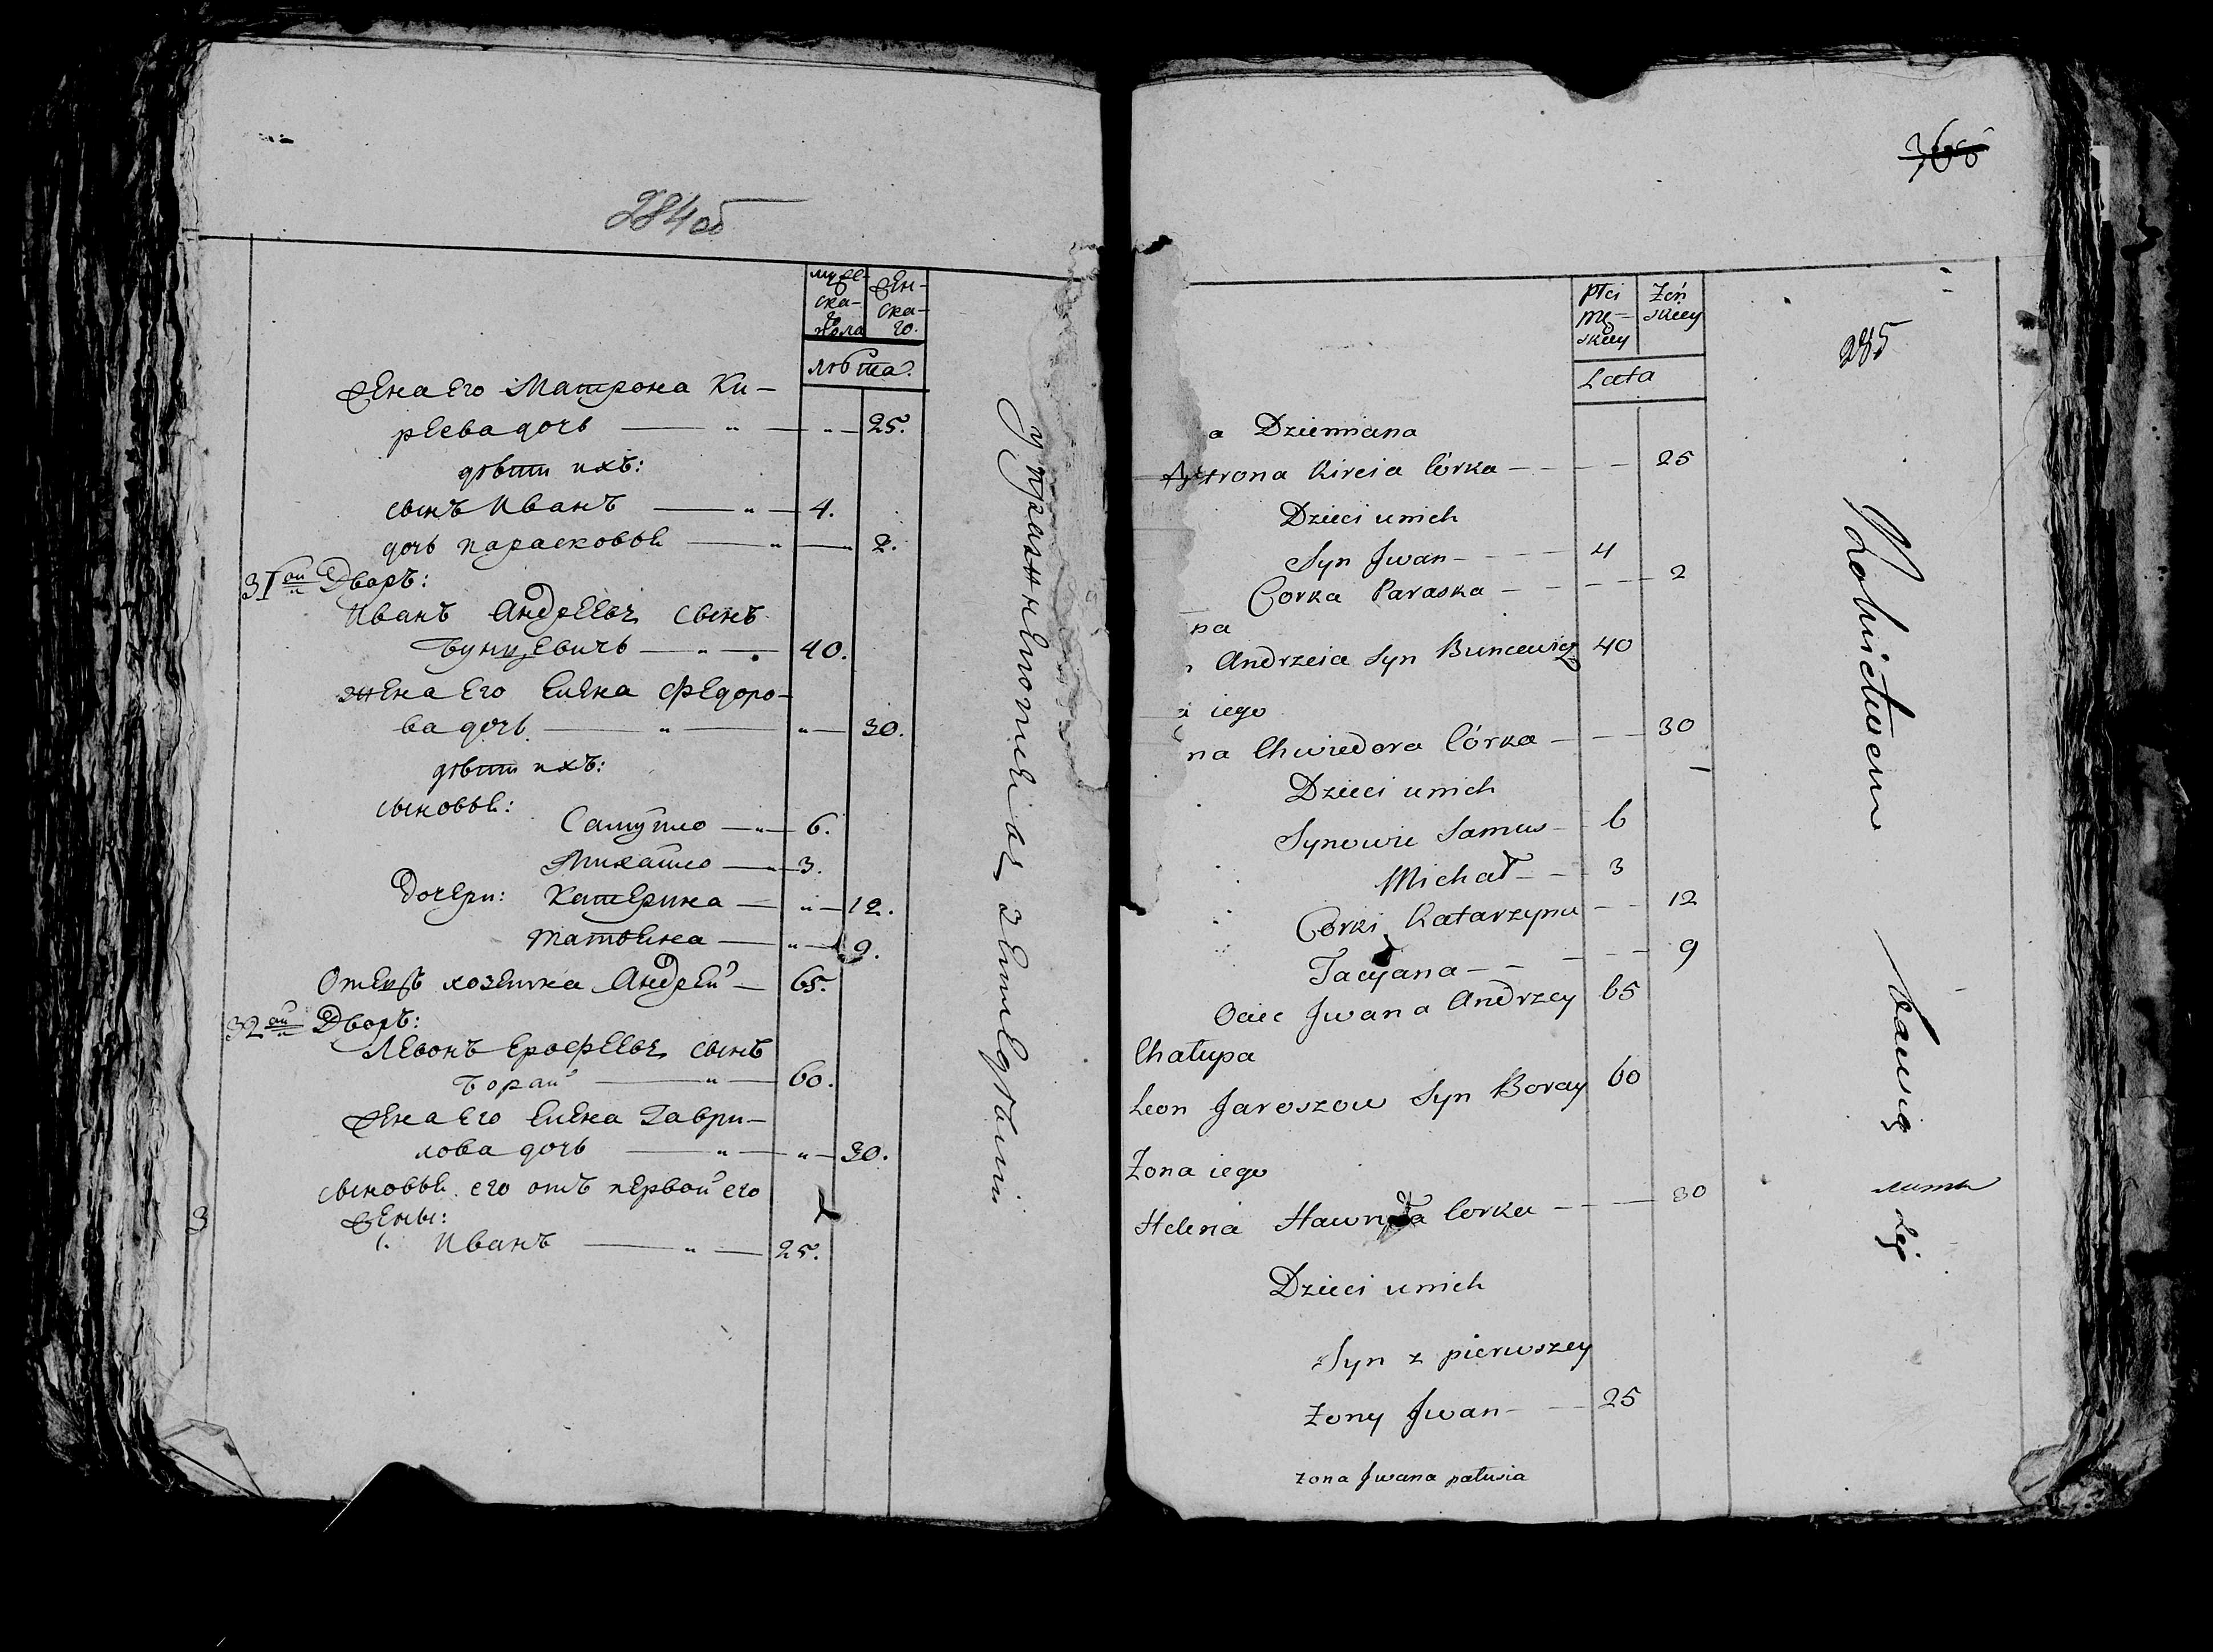 284 об
муже-
ска-
го
пола
жен-
ска-
го.
лѣта.
жена его Матрона Ки-
реева дочь — " — " — 25.
дѣти ихъ:
сынъ Иванъ — " — 4.
дочь Парасковья — " — 2.
31ой Дворъ:
Иванъ Андреевъ сынъ
Бунцевичъ — " — 40.
жена его Елена Федоро-
ва дочь — " — " — 30.
дѣти ихъ:
сыновья:
Самуйло — " — 6.
Михайло — " — 3.
Дочери: Катерина — " — 12.
Татьяна — " — 9.
Отецъ хозяина Андрей — 65.
32ой Дворъ:
Левонъ Ерофеевъ сынъ
Борай — " — 60.
жена его Елена Гаври-
лова дочь — " — " — 30.
сыновья его отъ первой его
жены:
1. Иванъ — " — 25.
упражняются въ земледѣліи
365
285
płci
mę-
skiey
Żeń
skiey
Lata
a Dziemiana
atrona Kireia Córka — — — 25
Dzieci u nich
Syn Jwan — — — 4
Corka Paraska — — — 2
pa
n Andrzeia Syn Buncewicz 40
a iego
na Chwiedora Córka — — — 30
Dzieci u nich
Synowie Samus — 6
Michał — — 3
Corki Katarzyna — — 12
Tacyana — — — — 9
Ociec Jwana Andrzey 65
Chałupa
Leon Jaroszow Syn Boray 60
Żona iego
Helena Hawryła Corka — — 30
Dzieci u nich
Syn z pierwszey
Żony Jwan — — 25
żona Jwana patusia
Rolnictwem bawią
się